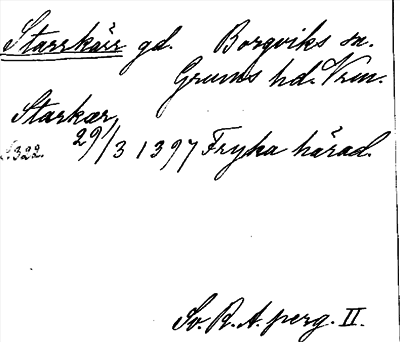 Starrkärr gd. Borgviks sn.
Grums hd. Vrm.
Starkær,
29/3 1397 Fryka härad.
s. 322.
Sv. R. A. perg. II.